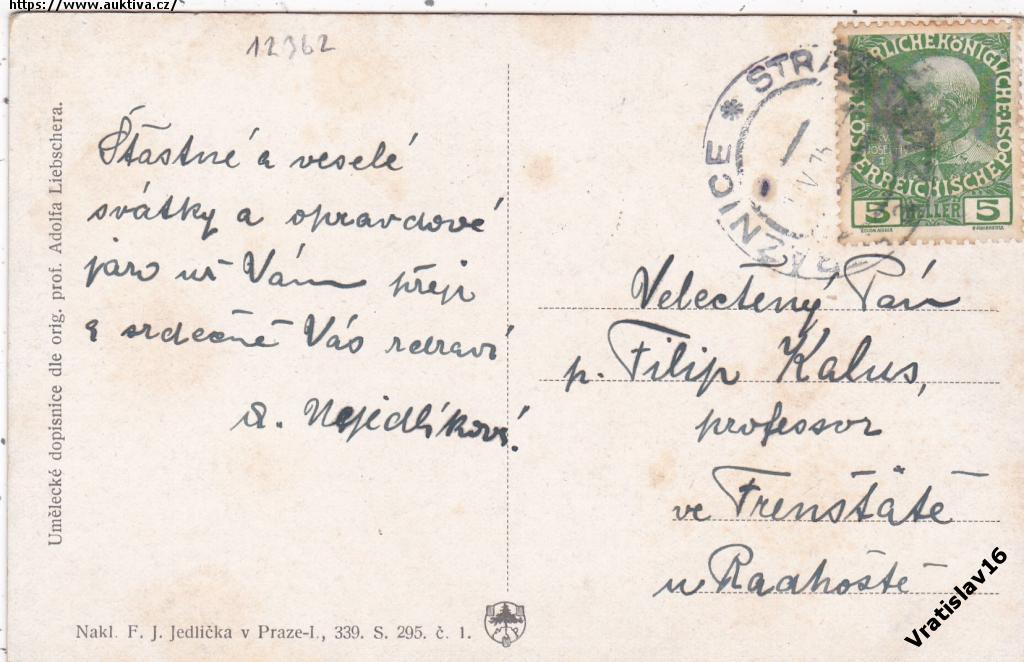 https://www.auktiva.cz/
12362
Umělecké dopisnice dle orig. prof. Adolfa Liebschera.
Šťastné a veselé
svátky a opravdové
jaro už Vám přeji
a srdečně Vás zdraví
A. Nejedlíková.
STRAŽNICE
KAISERLICHEKÖNIGLICHE
ÖSTERREICHISCHEPOST
5 HELLER 5
Velectěný Pán
p. Filip Kalus,
professor
ve Frenštátě
u Radhoště
Nakl. F. J. Jedlička v Praze-I., 339. S. 295. č. 1.
Vratislav16